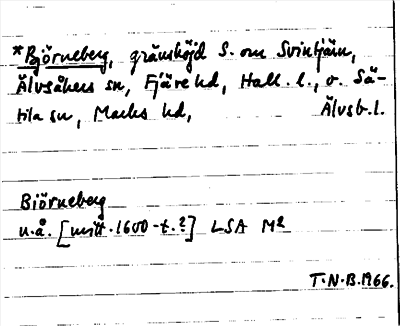 *Björneberg, gränshöjd S. om Svintjärn,
Älvsåkers sn, Fjäre hd, Hall. l., o. Sä-
tila sn, Marks hd, Älvsb. l.
Biörneberg
u.å. [mitt. 1600-t.?] LSA M2
T.N.B.1966.